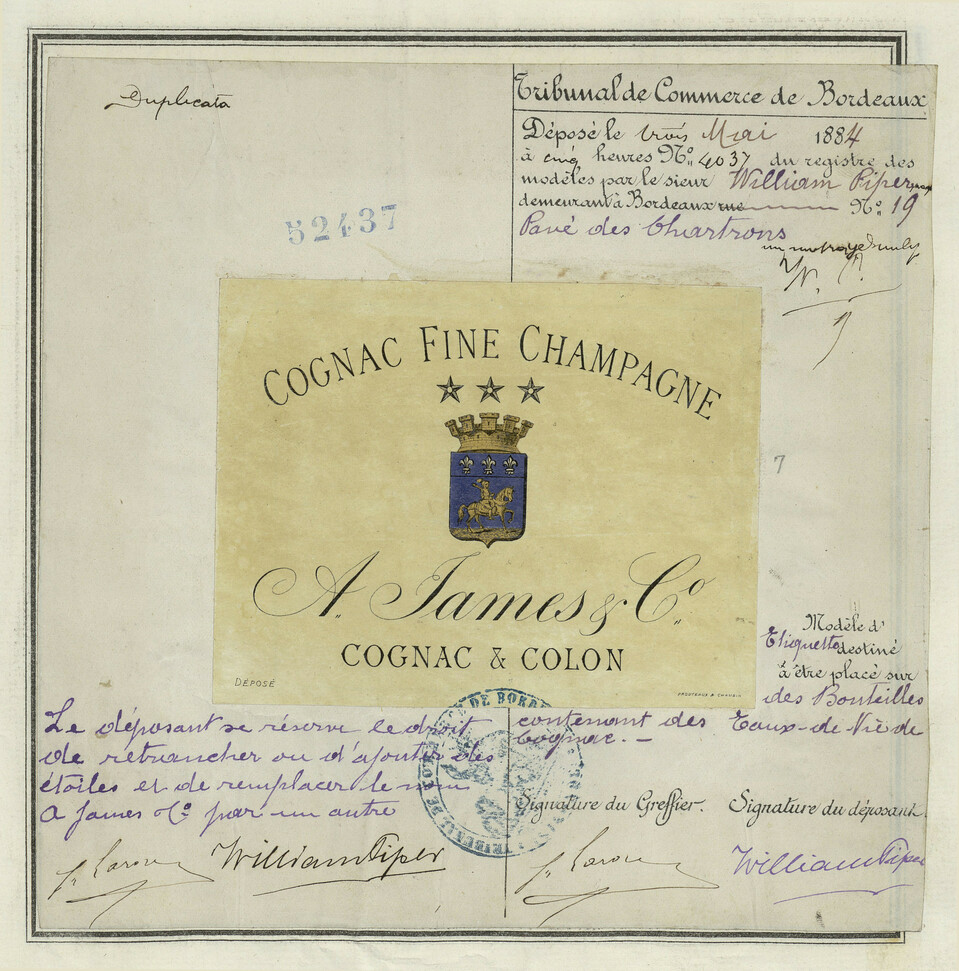 Duplicata
52437
Tribunal de Commerce de Bordeaux
Déposé le trois Mai 1884
à cinq heures No. 4037 du registre des
modèles par le sieur William Piper
demeurant à Bordeaux rue No. 19
Pavé des Chartrons
W. P.
COGNAC FINE CHAMPAGNE
7
A. James & Co.
COGNAC & COLON
DÉPOSÉ
Modèle d'
Etiquette destiné
à être placé sur
des Bouteilles
contenant des Eaux-de-Vie de
Cognac. -
Le déposant se réserve le droit
de retrancher ou d'ajouter des
étoiles et de remplacer le nom
A James & Co par un autre
William Piper
Signature du Greffier.
Signature du déposant.
William Piper
TRIBUNAL DE COMMERCE DE BORDEAUX